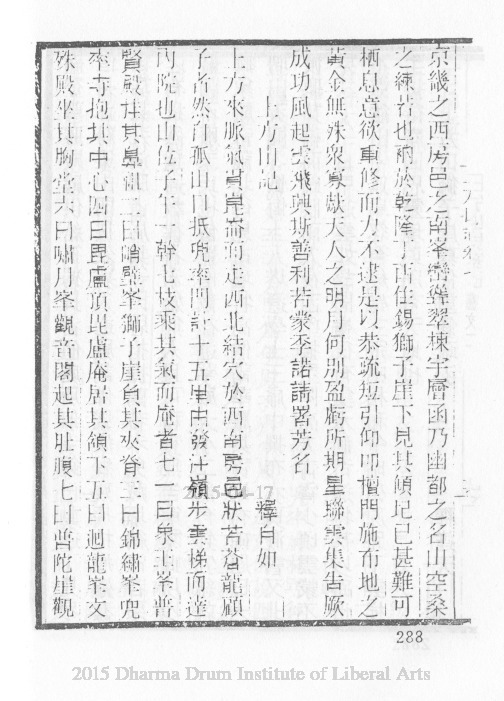 京畿之西房邑之南峯巒聳翠棟宇層函乃幽都之名山空桑
之練若也衲於乾隆丁酉住錫獅子崖下見其傾圮已甚難可
栖息意欲重修而力不逮是以恭疏短引仰叩檀門施布地之
黃金無殊衆寡獻天人之明月何別盈虧所期星聯雲集告厥
成功風起雲飛興斯善利若蒙季諾請署芳名
上方山記
釋自如
上方來脈氣貫崑崙而走西北結穴於西南房邑狀若蒼龍顧
子者然自孤山口抵兜率門計十五里由發汗嶺步雲梯而達
內院也山位子午一幹七枝乘其氣而庵者七一曰象王峯普
賢殿拄其鼻 二曰 壁峯獅子崖負其夾脊三曰錦繡峯兜
率寺抱其中心四曰毘盧頂毘盧庵居其頷下五曰迴龍峯文
殊殿坐其胸堂六曰嘯月峯觀音閣起其肚腹七曰普陀崖觀
2015-04-17
288
2015 Dharma Drum Institute of Liberal Arts